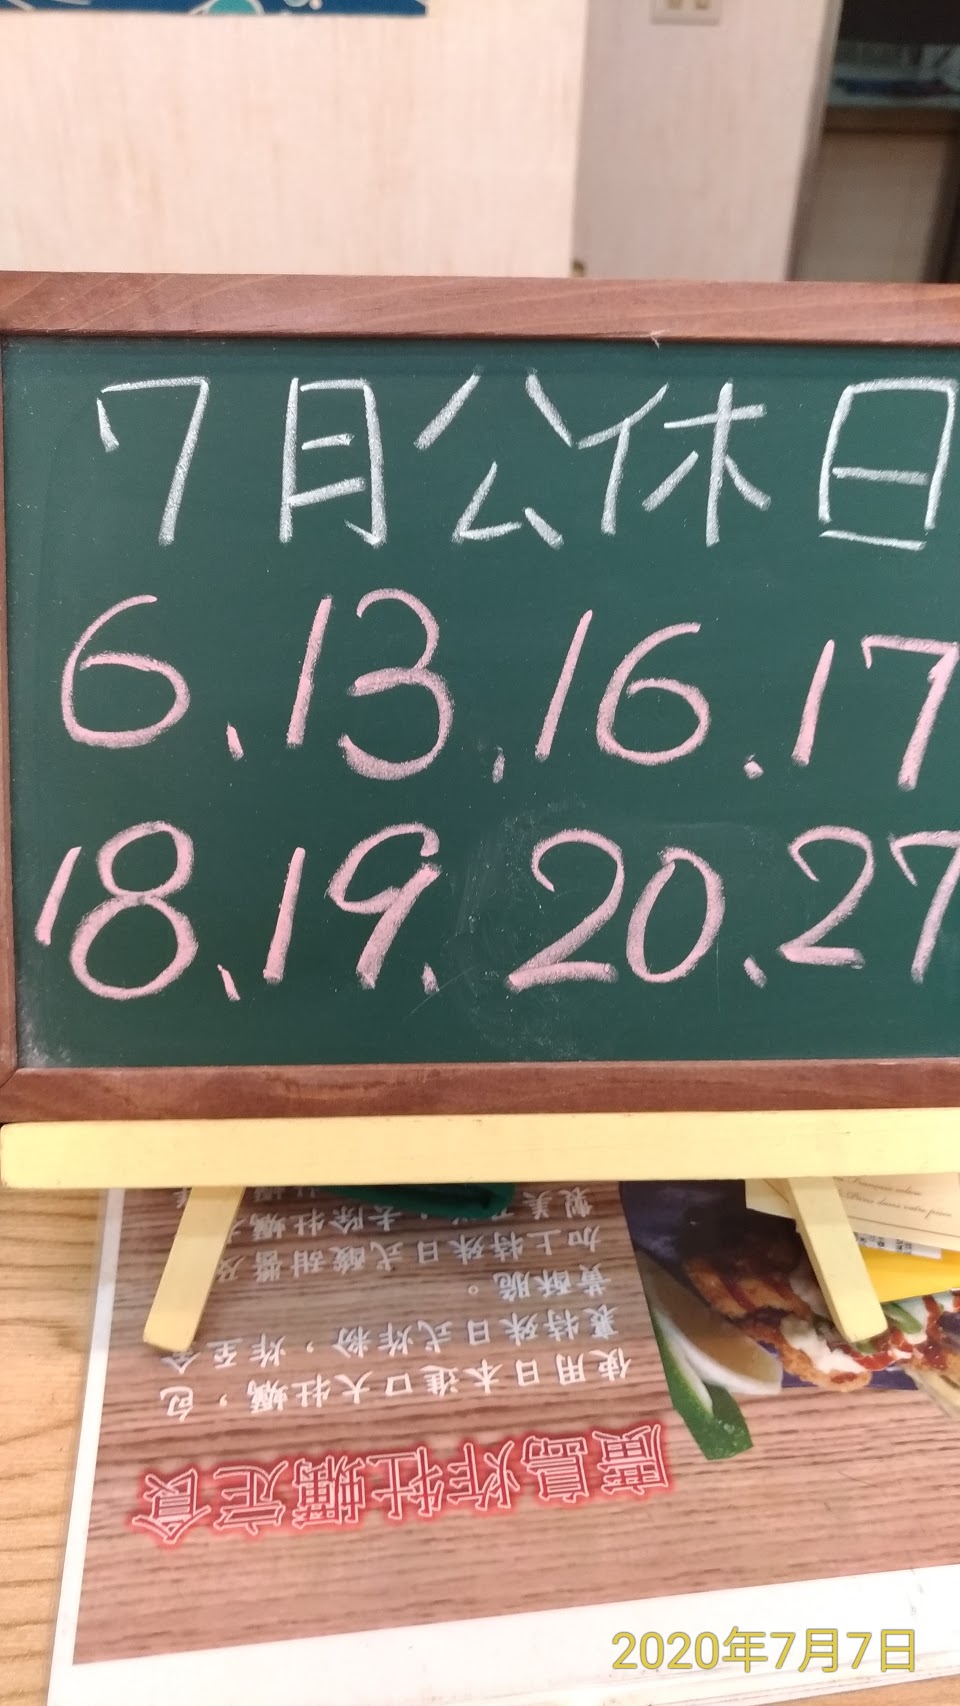 7月公休日
6、13、16、17
18、19、20、27
廣島炸牡蠣定食
使用日本進口大牡蠣,包
裹特殊日式炸粉,炸至金
黃酥脆。
加上特殊日式酸甜醬及
美
去除牡蠣
2020年7月7日